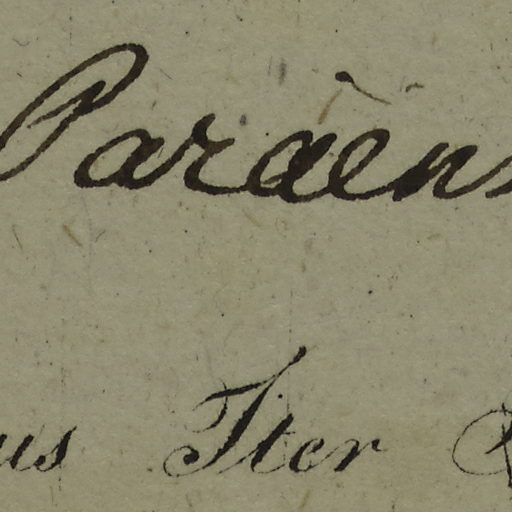 Paraen
us Iter